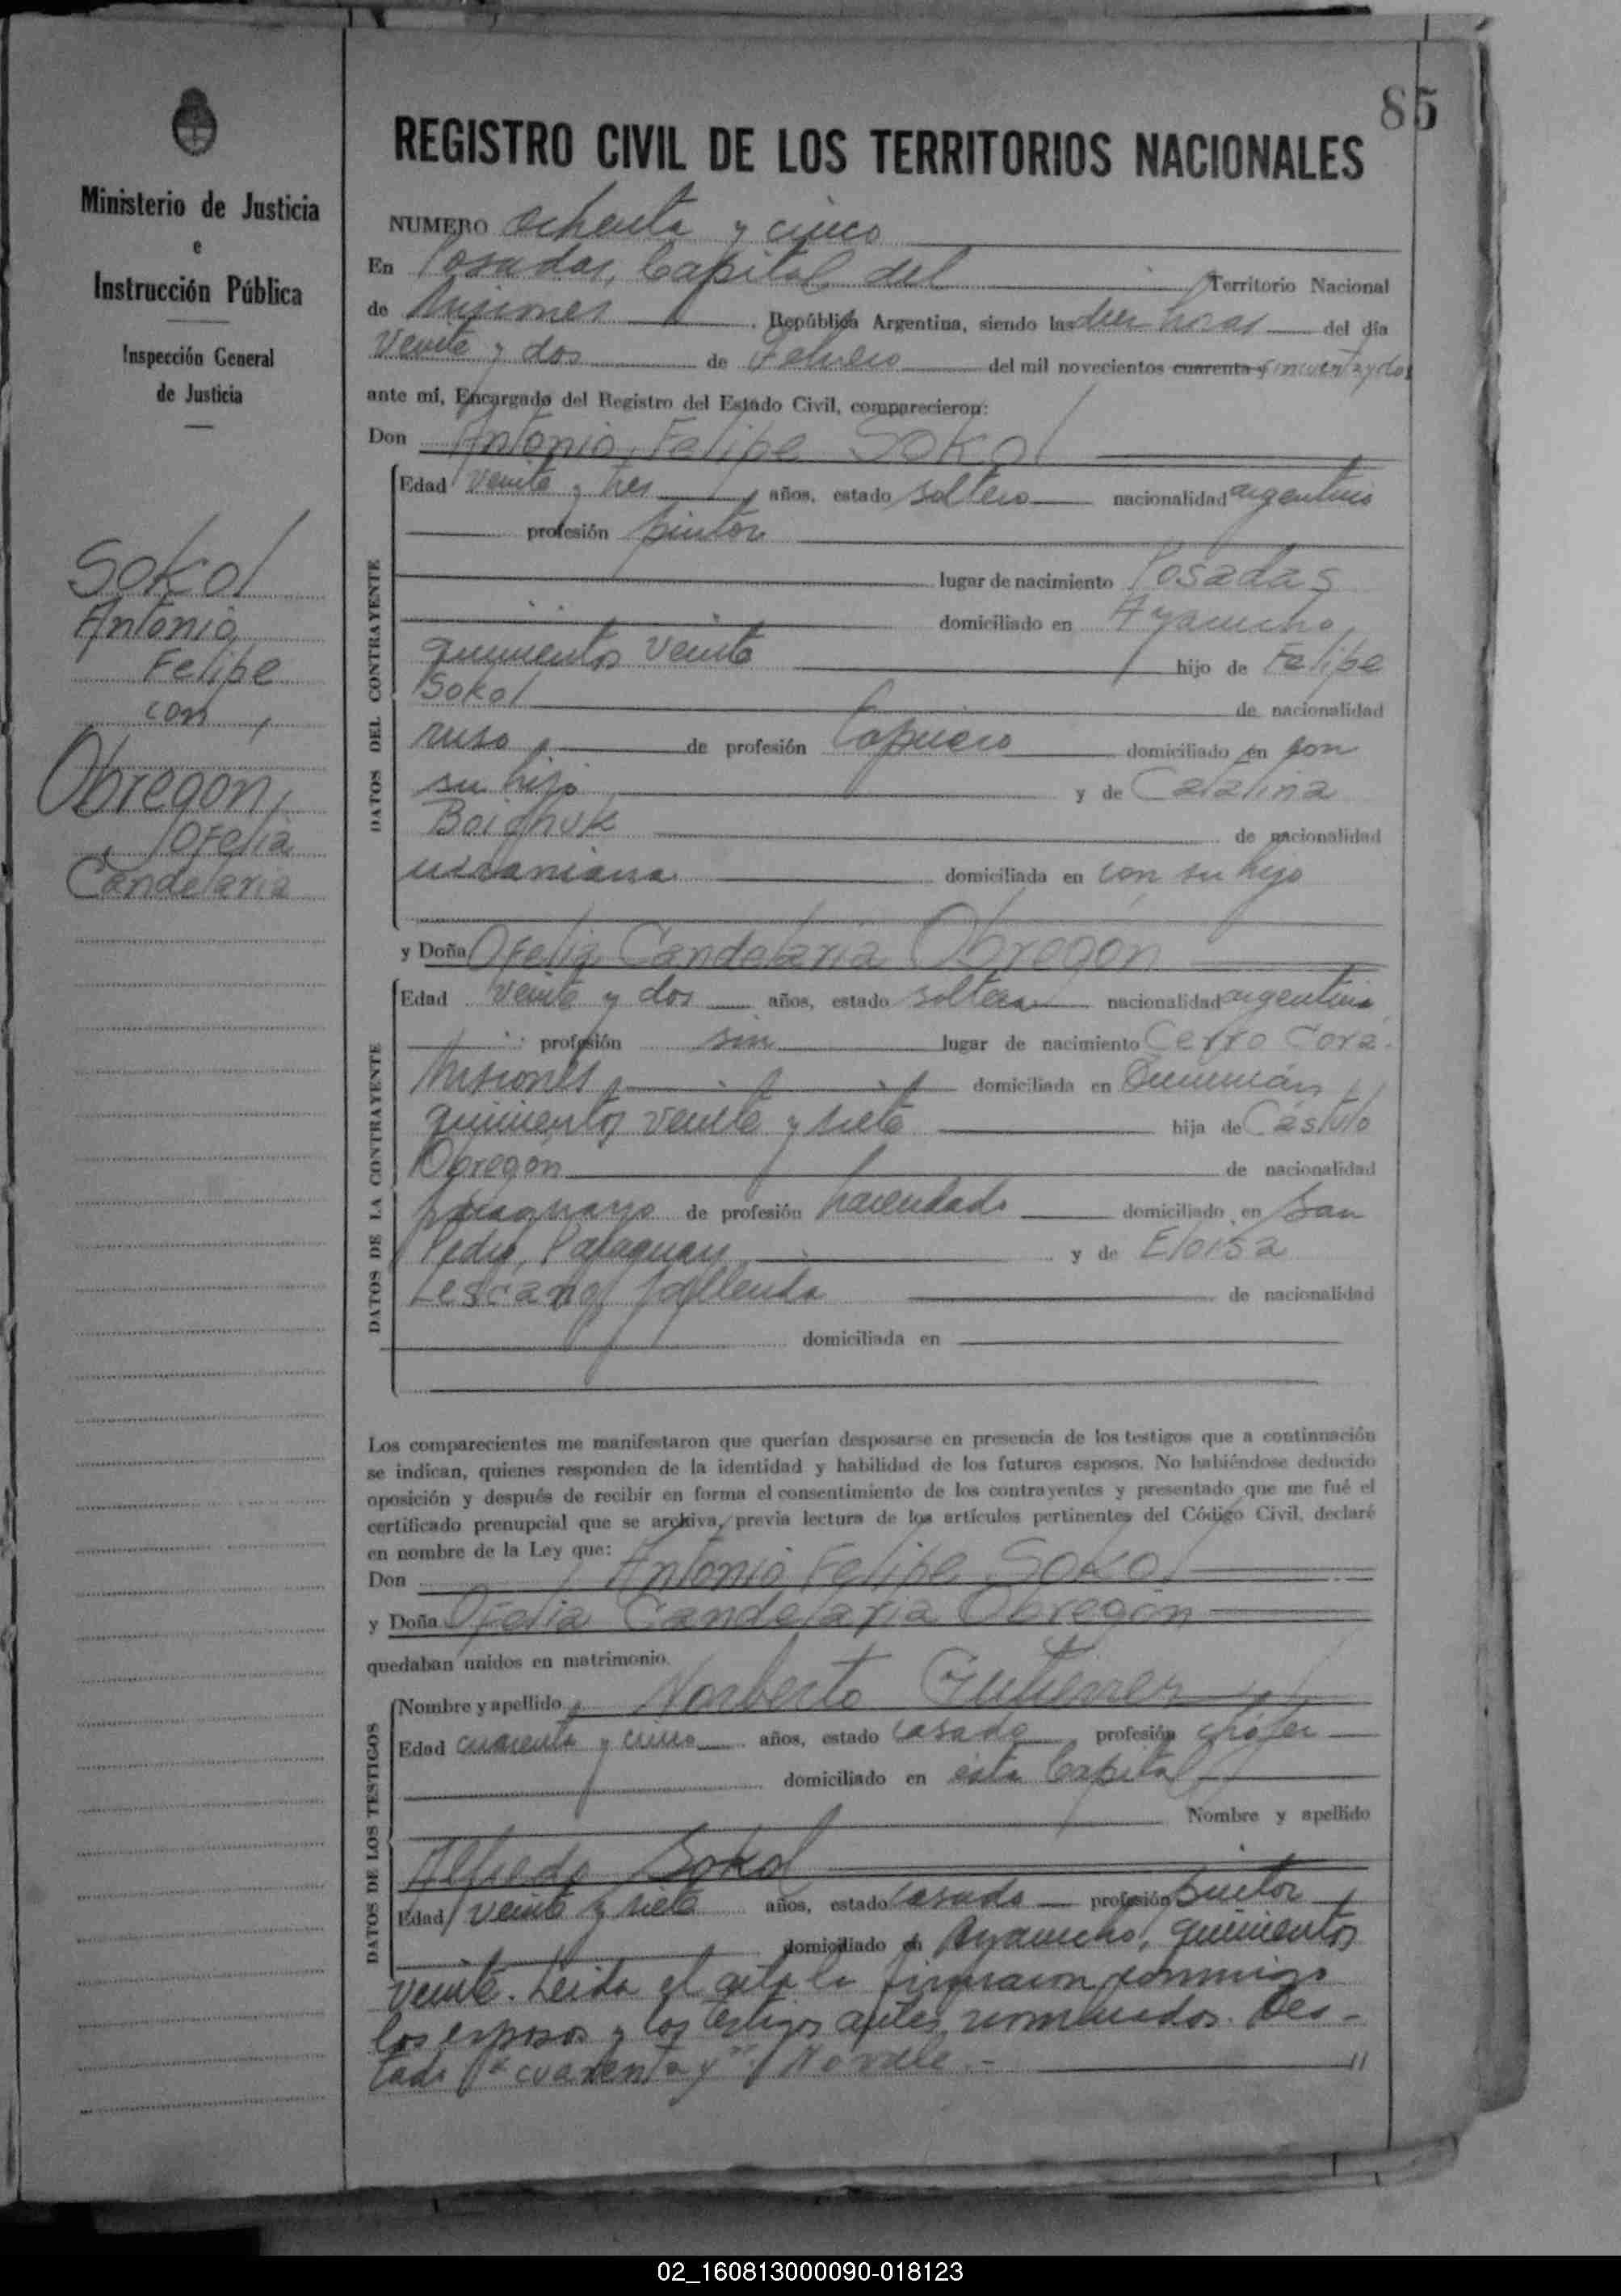 85
Ministerio de Justicia
e
Instrucción Pública
Inspección General
de Justicia
Sokol
Antonio
Felipe
con
Obregon,
Ofelia
Candelaria
REGISTRO CIVIL DE LOS TERRITORIOS NACIONALES
NUMERO ochenta y cinco
En Posadas, Capital del Territorio Nacional
de Misiones, República Argentina, siendo las diez horas del día
veinte y dos de Febrero del mil novecientos cuarenta y cincuenta y dos
ante mí, Encargado del Registro del Estado Civil, comparecieron:
Don Antonio Felipe Sokol
DATOS DEL CONTRAYENTE
Edad veinte y tres años, estado soltero nacionalidad argentino
profesión pintor
lugar de nacimiento Posadas
domiciliado en Ayacucho,
quinientos veinte hijo de Felipe
Sokol de nacionalidad
ruso, de profesión domiciliado en con
su hijo y de Catalina
Boichuk de nacionalidad
ucraniana domiciliada en con su hijo
y Doña Ofelia Candelaria Obregon
DATOS DE LA CONTRAYENTE
Edad veinte y dos años, estado soltera nacionalidad argentina,
profesión sin lugar de nacimiento Cerro Corá.
Misiones, domiciliada en Tucumán,
quinientos veinte y siete hija de Cástulo
Obregón de nacionalidad
paraguayo de profesión hacendado domiciliado en San
Pedro, Paraguay y de Eloisa
Lescano, fallecida de nacionalidad
domiciliada en
Los comparecientes me manifestaron que querían desposarse en presencia de los testigos que a continuación
se indican, quienes responden de la identidad y habilidad de los futuros esposos. No habiéndose deducido
oposición y después de recibir en forma el consentimiento de los contrayentes y presentado que me fué el
certificado prenupcial que se archiva, previa lectura de los artículos pertinentes del Código Civil, declaré
en nombre de la Ley que:
Don Antonio Felipe Sokol
y Doña Ofelia Candelaria Obregón
quedaban unidos en matrimonio.
DATOS DE LOS TESTIGOS
Nombre y apellido Norberto Gutierrez
Edad cuarenta y cinco años, estado casado profesión chófer
domiciliado en esta Capital
Nombre y apellido
Alfredo Sokol
Edad veinte y siete años, estado casado profesión pintor
domiciliado en Ayacucho, quinientos
veinte. Leida el acta la firmaron conmigo
los esposos y los testigos antes nombrados. Tes-
tado "cuarenta y" No vale.-
02_160813000090-018123